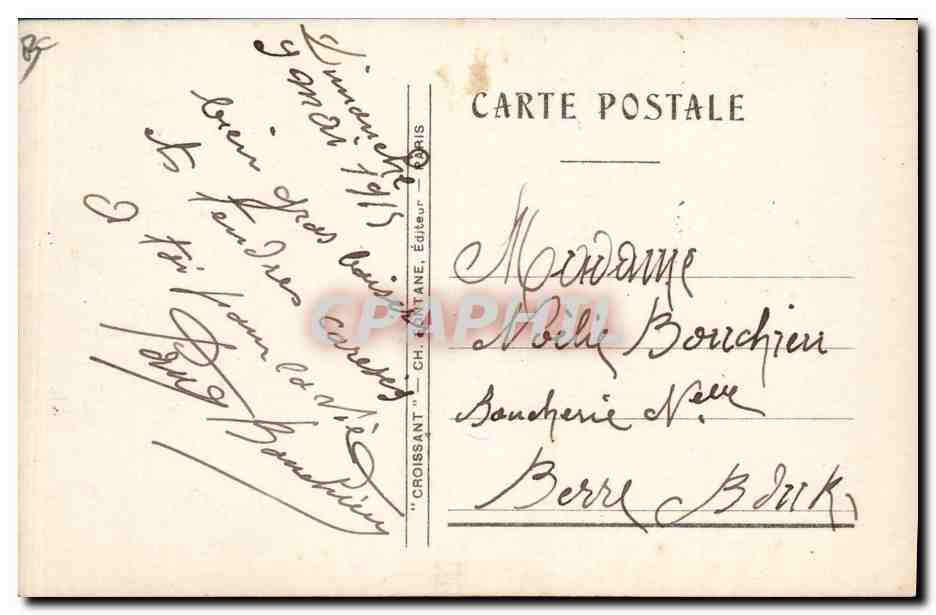 Dimanche
9 mai 1915
bien gros baisers
et tendres caresses
à toi pour la vie
Bouchieu
"CROISSANT" — CH. FONTANE, Éditeur — PARIS
CARTE POSTALE
Madame
Noëlie Bouchieu
Boucherie Nelle
Berre B du R
CPAPHIL